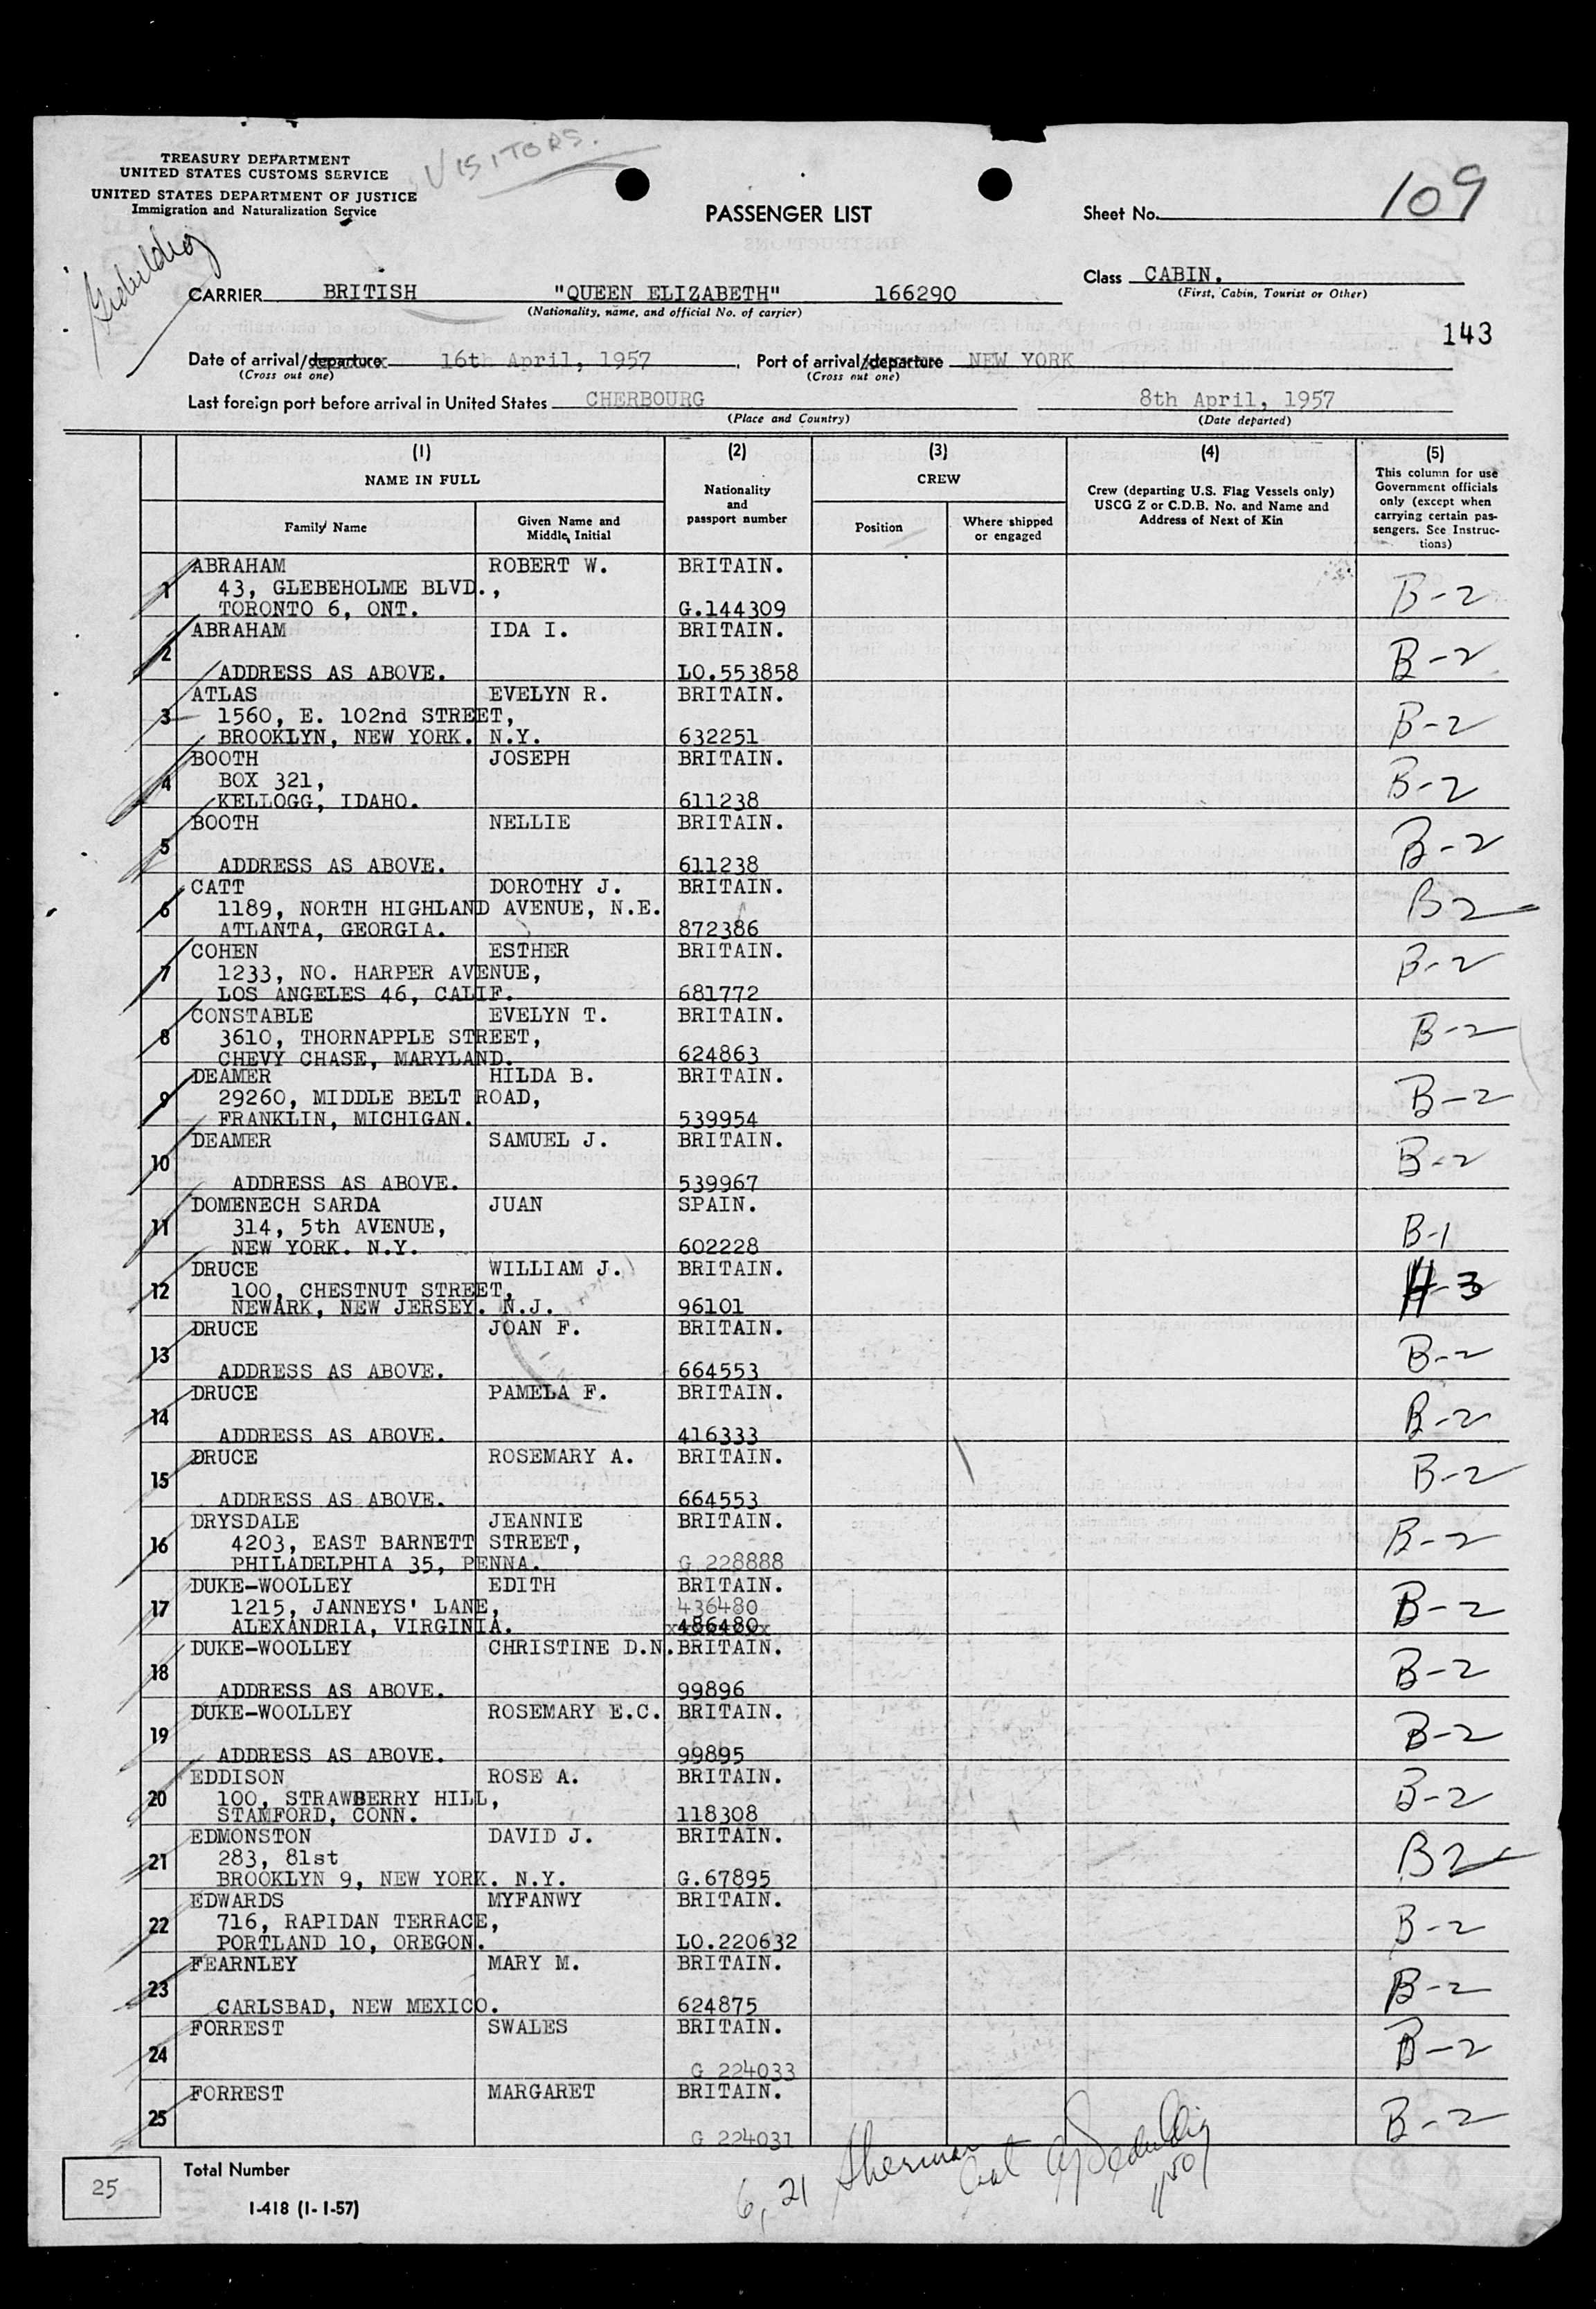 VISITORS.
TREASURY DEPARTMENT
UNITED STATES CUSTOMS SERVICE
UNITED STATES DEPARTMENT OF JUSTICE
Immigration and Naturalization Service
PASSENGER LIST
Sheet No. 109
CARRIER BRITISH "QUEEN ELIZABETH" 166290
(Nationality, name, and official No. of carrier)
Class CABIN.
(First, Cabin, Tourist or Other)
143
Date of arrival/departure 16th April, 1957. Port of arrival/departure NEW YORK
(Cross out one) (Cross out one)
Last foreign port before arrival in United States CHERBOURG 8th April, 1957
(Place and Country) (Date departed)
(1) (2) (3) (4) (5)
NAME IN FULL
Family Name
Given Name and
Middle Initial
Nationality
and
passport number
CREW
Position
Where shipped
or engaged
Crew (departing U.S. Flag Vessels only)
USCG Z or C.D.B. No. and Name and
Address of Next of Kin
This column for use
Government officials
only (except when
carrying certain pas-
sengers. See Instruc-
tions)
ABRAHAM ROBERT W. BRITAIN.
1 43, GLEBEHOLME BLVD., B-2
TORONTO 6, ONT. G.144309
ABRAHAM IDA I. BRITAIN.
2 B-2
ADDRESS AS ABOVE. LO.553858
ATLAS EVELYN R. BRITAIN.
3 1560, E. 102nd STREET, B-2
BROOKLYN, NEW YORK. N.Y. 632251
BOOTH JOSEPH BRITAIN.
4 BOX 321, B-2
KELLOGG, IDAHO. 611238
BOOTH NELLIE BRITAIN.
5 B-2
ADDRESS AS ABOVE. 611238
CATT DOROTHY J. BRITAIN.
6 1189, NORTH HIGHLAND AVENUE, N.E. B2
ATLANTA, GEORGIA. 872386
COHEN ESTHER BRITAIN.
7 1233, NO. HARPER AVENUE, B-2
LOS ANGELES 46, CALIF. 681772
CONSTABLE EVELYN T. BRITAIN.
8 3610, THORNAPPLE STREET, B-2
CHEVY CHASE, MARYLAND. 624863
DEAMER HILDA B. BRITAIN.
9 29260, MIDDLE BELT ROAD, B-2
FRANKLIN, MICHIGAN. 539954
DEAMER SAMUEL J. BRITAIN.
10 B-2
ADDRESS AS ABOVE. 539967
DOMENECH SARDA JUAN SPAIN.
11 314, 5th AVENUE, B-1
NEW YORK. N.Y. 602228
DRUCE WILLIAM J. BRITAIN.
12 100, CHESTNUT STREET, H-3
NEWARK, NEW JERSEY. N.J. 96101
DRUCE JOAN F. BRITAIN.
13 B-2
ADDRESS AS ABOVE. 664553
DRUCE PAMELA F. BRITAIN.
14 B-2
ADDRESS AS ABOVE. 416333
DRUCE ROSEMARY A. BRITAIN.
15 B-2
ADDRESS AS ABOVE. 664553
DRYSDALE JEANNIE BRITAIN.
16 4203, EAST BARNETT STREET, B-2
PHILADELPHIA 35, PENNA. G 228888
DUKE-WOOLLEY EDITH BRITAIN.
17 1215, JANNEYS' LANE, 436480 B-2
ALEXANDRIA, VIRGINIA. 486480
DUKE-WOOLLEY CHRISTINE D.N. BRITAIN.
18 B-2
ADDRESS AS ABOVE. 99896
DUKE-WOOLLEY ROSEMARY E.C. BRITAIN.
19 B-2
ADDRESS AS ABOVE. 99895
EDDISON ROSE A. BRITAIN.
20 100, STRAWBERRY HILL, B-2
STAMFORD, CONN. 118308
EDMONSTON DAVID J. BRITAIN.
21 283, 81st B2
BROOKLYN 9, NEW YORK. N.Y. G.67895
EDWARDS MYFANWY BRITAIN.
22 716, RAPIDAN TERRACE, B-2
PORTLAND 10, OREGON. LO.220632
FEARNLEY MARY M. BRITAIN.
23 B-2
CARLSBAD, NEW MEXICO. 624875
FORREST SWALES BRITAIN.
24 B-2
G 224033
FORREST MARGARET BRITAIN.
25 B-2
G 224031
25 Total Number
I-418 (1-1-57)
6, 21 Sherman